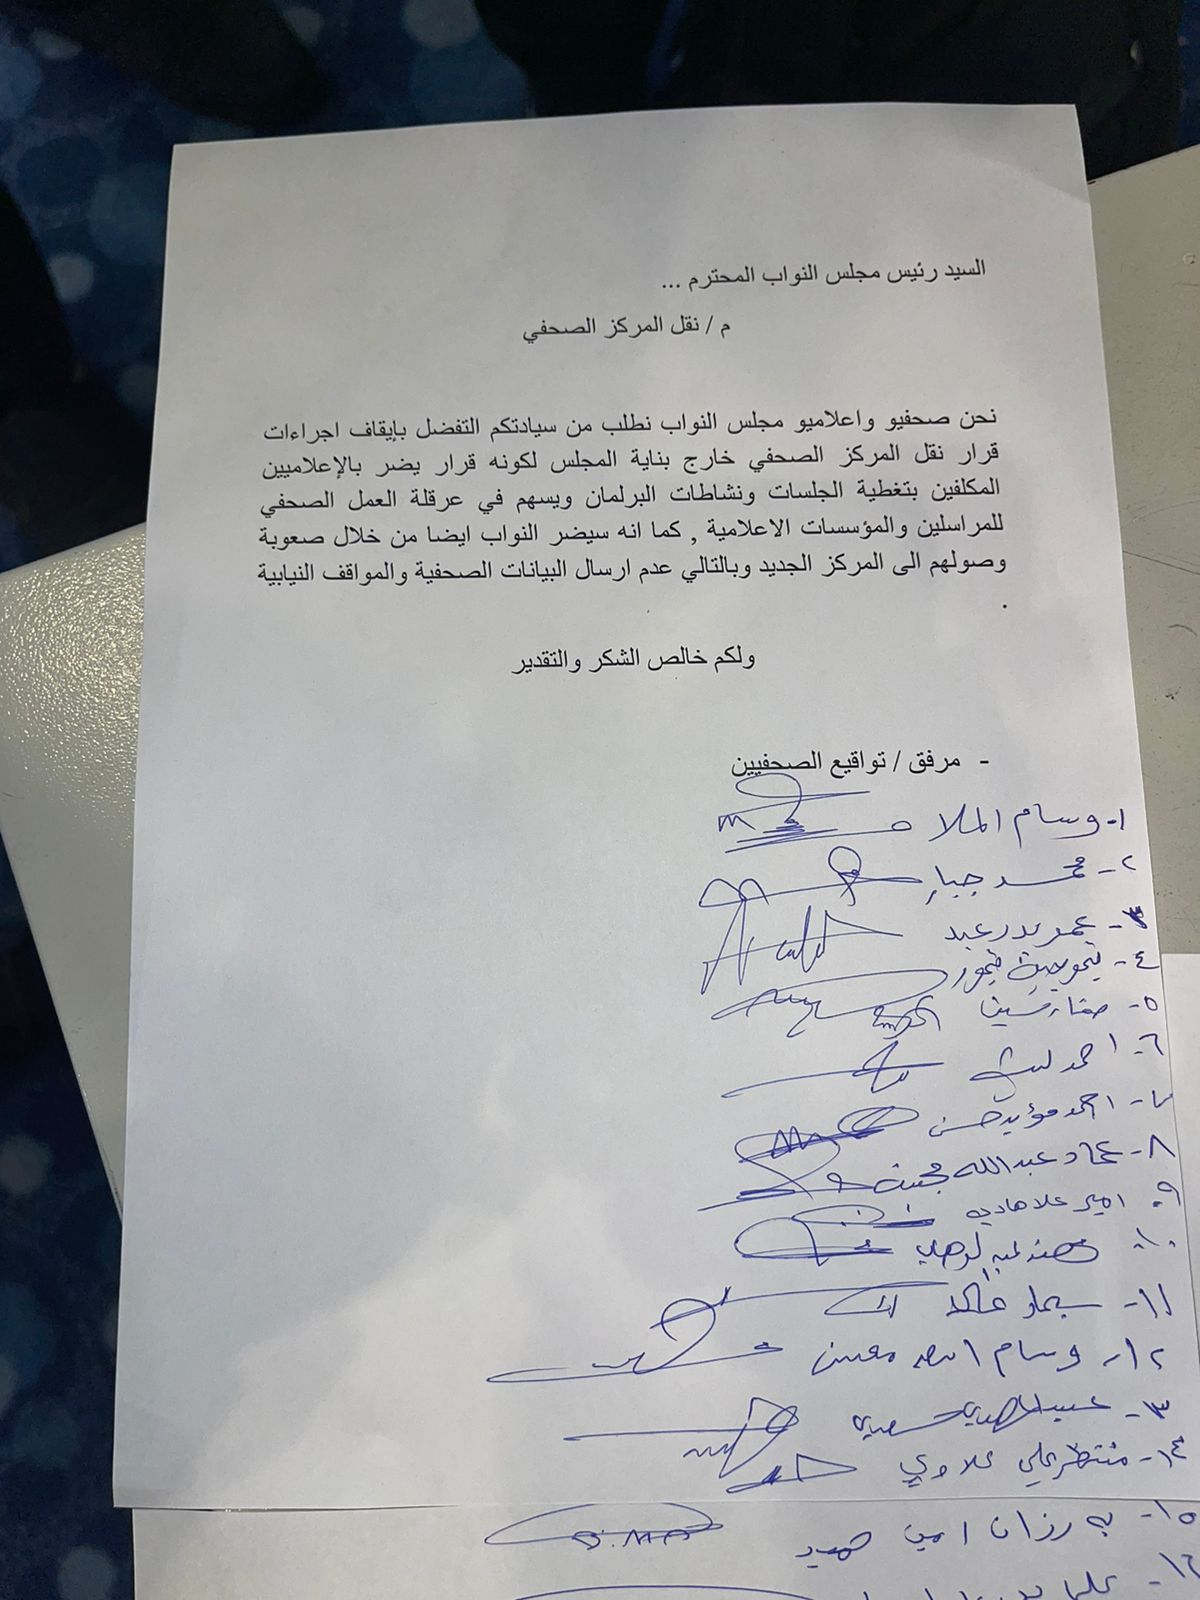 السيد رئيس مجلس النواب المحترم ...
م / نقل المركز الصحفي
نحن صحفيو واعلاميو مجلس النواب نطلب من سيادتكم التفضل بإيقاف اجراءات
قرار نقل المركز الصحفي خارج بناية المجلس لكونه قرار يضر بالإعلاميين
المكلفين بتغطية الجلسات ونشاطات البرلمان ويسهم في عرقلة العمل الصحفي
للمراسلين والمؤسسات الاعلامية , كما انه سيضر النواب ايضا من خلال صعوبة
وصولهم الى المركز الجديد وبالتالي عدم ارسال البيانات الصحفية والمواقف النيابية
.
ولكم خالص الشكر والتقدير
- مرفق / تواقيع الصحفيين
١- وسام الملا
٢- محمد جبار
٣- عمر بدر عبد
٤-
٥- صفاء
٦- احمد ليث
٧- احمد مؤيد حسن
٨- عماد عبدالله
٩- امير علاء هادي
١٠- مهند
١١- خالد
١٢- وسام معين
١٣-
١٤- منتظر علي علاوي
١٥- به رزان امين حميد
١٦- علي